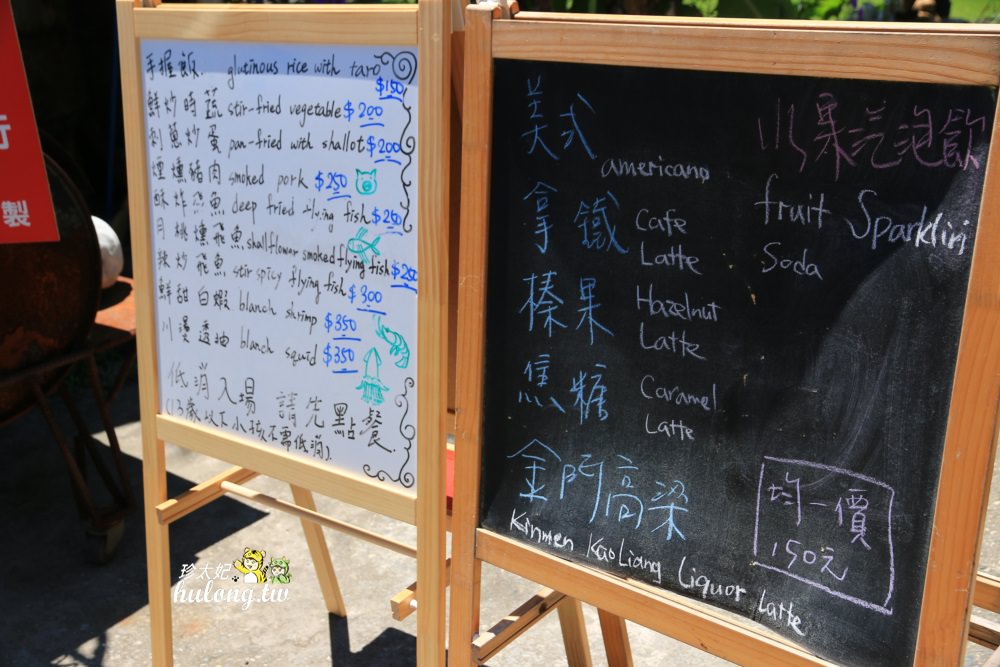 行
製
手握飯. glutinous rice with taro $150
鮮炒時蔬 stir-fried vegetable $200
剝蔥炒蛋 pan-fried with shallot $200
煙燻豬肉 smoked pork $250
酥炸飛魚 deep fried flying fish $250
月桃燻飛魚 shallflowar smoked flying fish $250
辣炒飛魚 stir spicy flying fish $300
鮮甜白蝦 blanch shrimp $350
川燙透抽 blanch squid $350
低消入場 請先點餐.
(13歲以下小孩不需低消).
美式 americano
拿鐵 Cafe
Latte
榛果 Hazelnut
Latte
焦糖 Caramel
Latte
金門高梁
Kinmen KaoLiang Liquor Latte
水果汽泡飲
fruit Sparklin
Soda
均一價
150元
珍太妃
hulong.tw